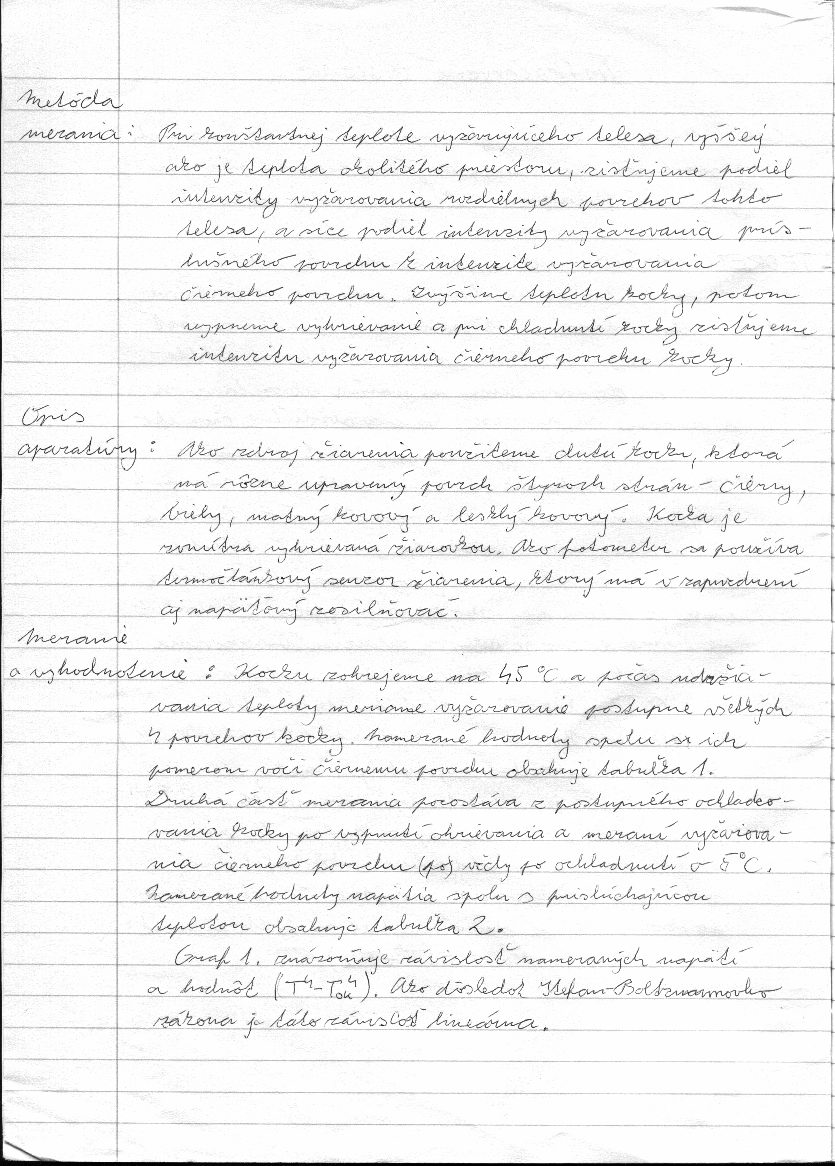 Metóda
merania: Pri konštantnej teplote vyžarujúceho telesa, vyššej
ako je teplota okolitého priestoru, zisťujeme podiel
intenzity vyžarovania rozdielnych povrchov tohto
telesa, a síce podiel intenzity vyžarovania prís-
lušného povrchu k intenzite vyžarovania
čierneho povrchu. Zvýšime teplotu kocky, potom
vypneme vyhrievanie a pri chladnutí kocky zisťujeme
intenzitu vyžarovania čierneho povrchu kocky.
Opis
aparatúry: Ako zdroj žiarenia použiteme dutú kocku, ktorá
má rôzne upravený povrch štyroch strán - čierny,
biely, matný kovový a lesklý kovový. Kocka je
zvnútra vyhrievaná žiarovkou. Ako fotometer sa používa
termočlánkový senzor žiarenia, ktorý má v zapuzdrení
aj napäťový zosilňovač.
Meranie
a vyhodnotenie: Kocku zohrejeme na 45 °C a počas udržia-
vania teploty meriame vyžarovanie postupne všetkých
4 povrchov kocky. Namerané hodnoty spolu s ich
pomerom voči čiernemu povrchu obsahuje tabuľka 1.
Druhá časť merania pozostáva z postupného ochladzo-
vania kocky po vypnutí ohrievania a meraní vyžarova-
nia čierneho povrchu (po) vždy po ochladnutí o 5°C.
Namerané hodnoty napätia spolu s prislúchajúcou
teplotou obsahuje tabuľka 2.
Graf 1. znázorňuje závislosť nameraných napätí
a hodnôt (T⁴-Tok⁴). Ako dôsledok Stefan-Boltzmannovho
zákona je táto závislosť lineárna.